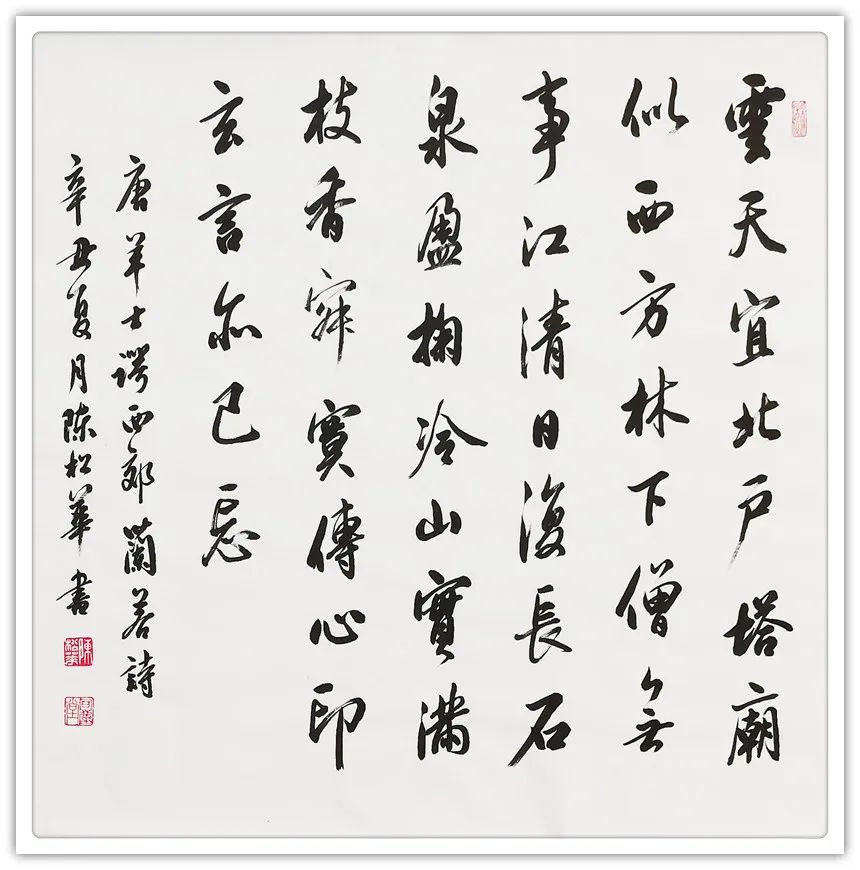 雲天宜北户塔廟
似西方林下僧無
事江清日復長石
泉盈掬冷山實滿
枝香寂寞傳心印
玄言亦已忘
唐羊士谔西郊蘭若詩
辛丑夏月陈松華書